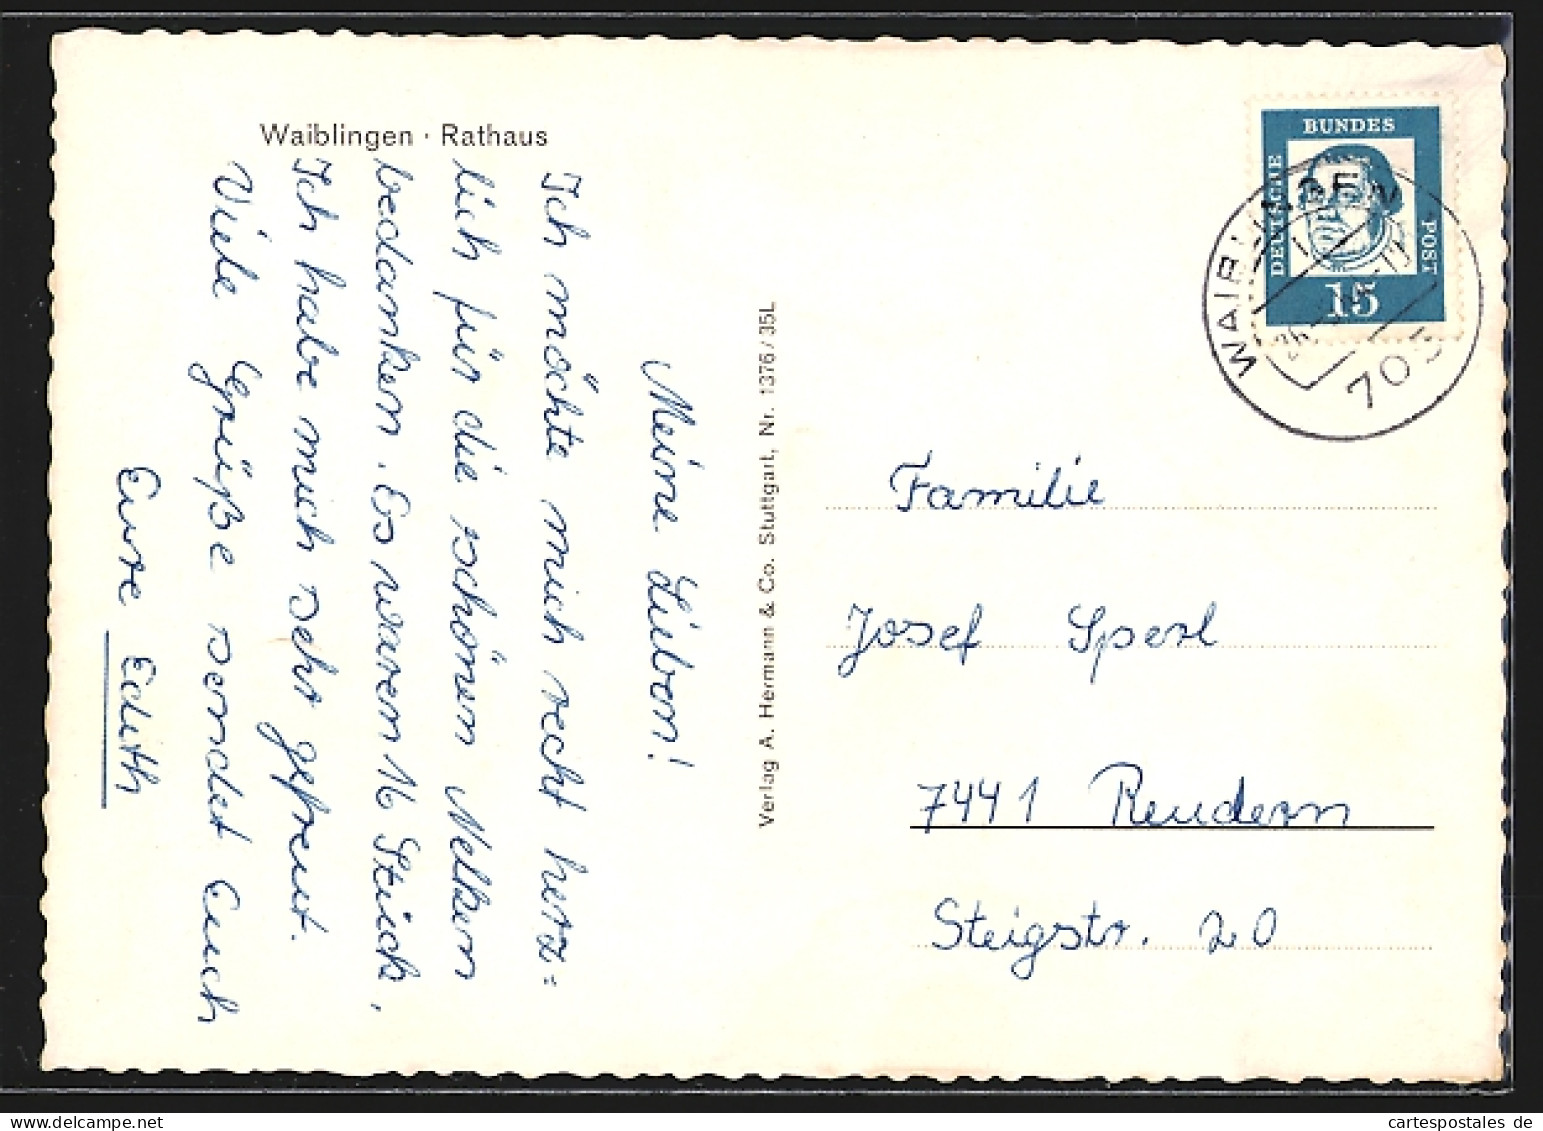 Waiblingen · Rathaus
Meine Lieben!
Ich möchte mich recht herz=
lich für die schönen Nelken
bedanken. Es waren 16 Stück,
Ich habe mich sehr gefreut.
Viele Grüße sendet Euch
Eure Edith
Verlag A. Hermann & Co. Stuttgart, Nr. 1376/35L
DEUTSCHE BUNDES POST
15
WAIBLINGEN
705
Familie
Josef Sperl
7441 Reudern
Steigstr. 20
cartespostales de